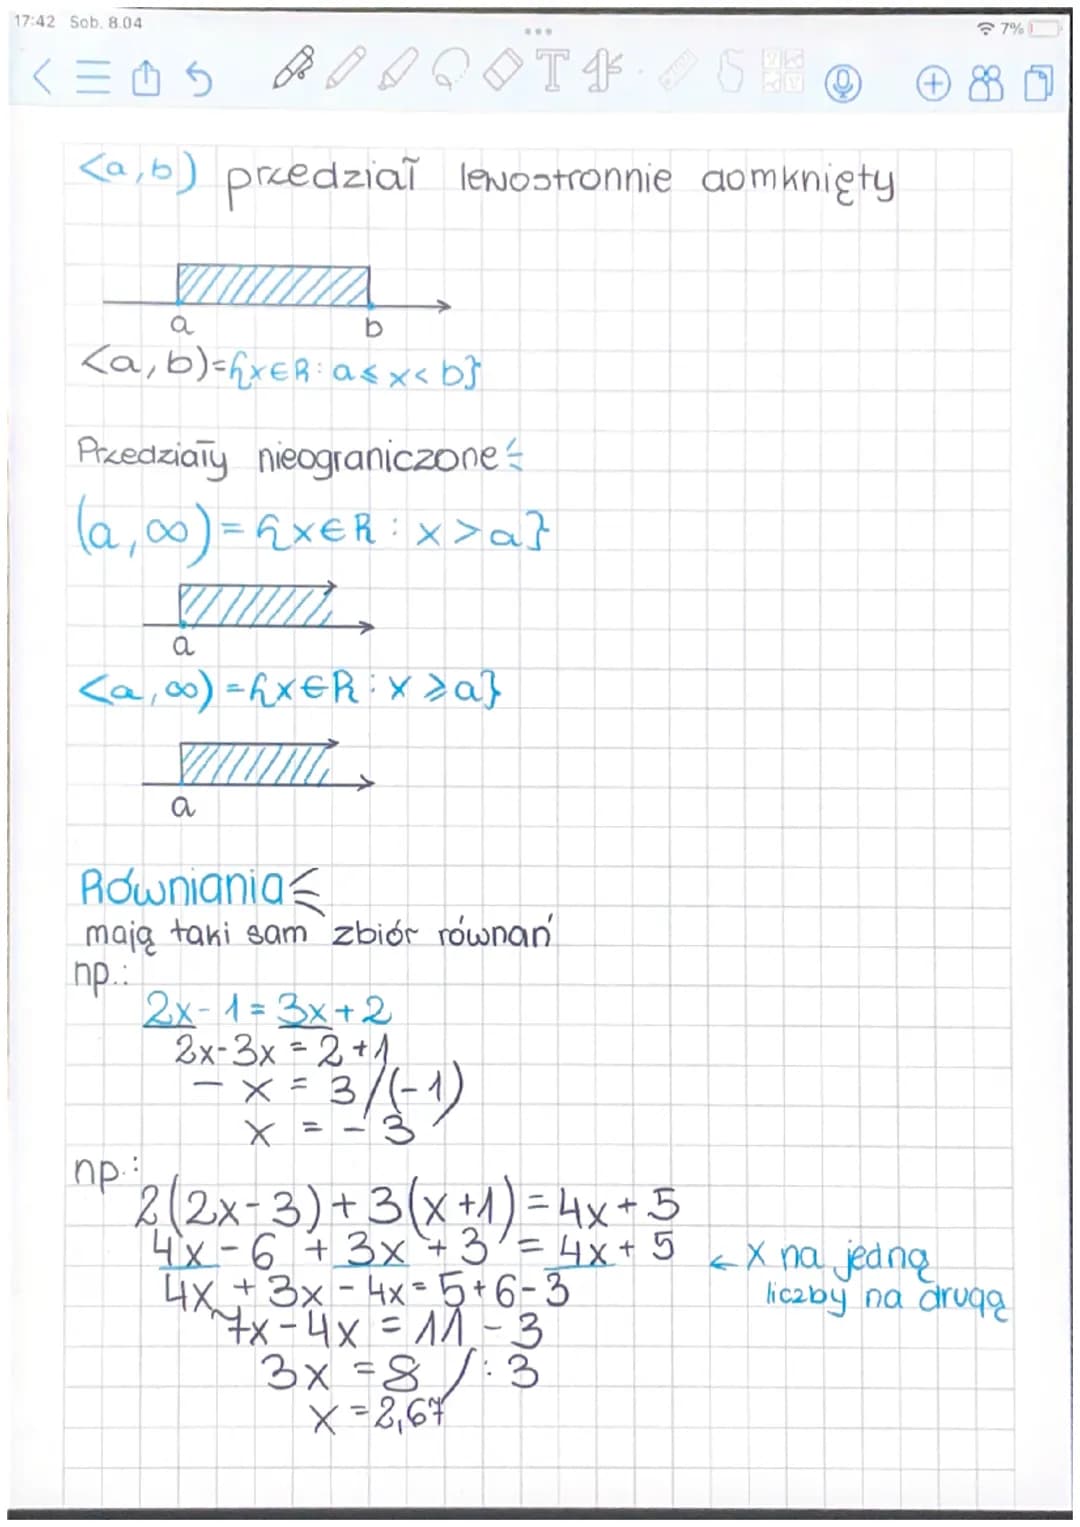 17:42 Sob. 8.04
7%
<a,b) przedział lewostronnie domknięty
a b
<a,b)={x∈R: a≤x<b}
Przedziały nieograniczone:
(a,∞)={x∈R: x>a}
a
<a,∞)={x∈R: x≥a}
a
Równiania
mają taki sam zbiór równań
np.:
2x-1=3x+2
2x-3x=2+1
-x=3/(-1)
x=-3
np.:
2(2x-3)+3(x+1)=4x+5
4x-6+3x+3=4x+5 ← x na jedną
4x+3x-4x=5+6-3 liczby na drugą
7x-4x=11-3
3x=8 /:3
x=2,67